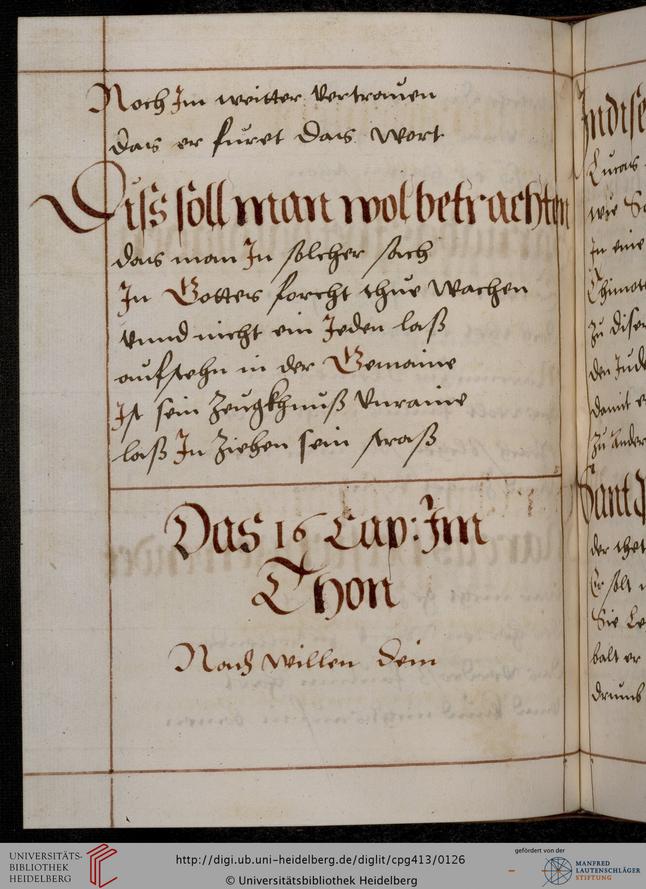 Noch Im weitter vertrauen
das er furet das wort
Diss soll man wol betrachten
das man In solcher sach
In Gottes forcht thue wachen
vnnd nicht ein Jeden laß
aufstehn in der Gemaine
Ist sein Zeugkhnuß vnraine
laß In Ziehen sein straß
Das 16 Cap: Im
Thon
Nach willen dein
Lucas
wie
In eine
zu
den Jude
damit e
zu ander
Er solt
Sie
balt er
UNIVERSITÄTS-
BIBLIOTHEK
HEIDELBERG
http://digi.ub.uni-heidelberg.de/diglit/cpg413/0126
© Universitätsbibliothek Heidelberg
gefördert von der
MANFRED
LAUTENSCHLÄGER
STIFTUNG